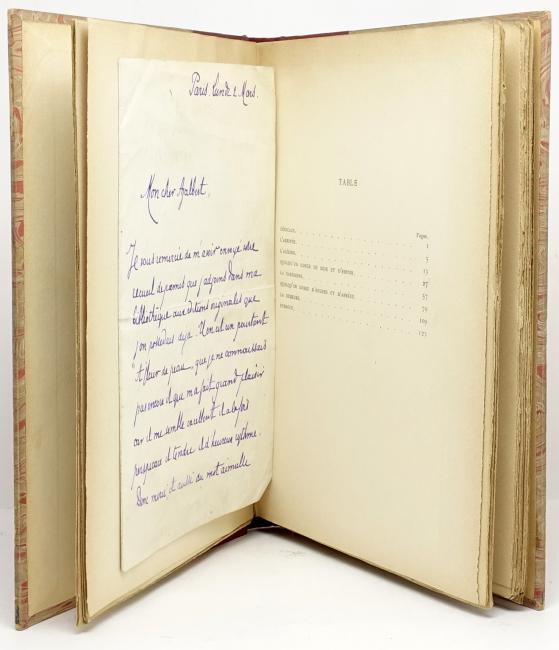 Paris lundi 2 Mars.
Mon cher Ajalbert,
Je vous remercie de m'avoir envoyé votre
recueil de poèmes que j'adjoins dans ma
bibliothèque aux éditions originales que
j'en possédais déjà. Il en est un pourtant
"A fleur de peau", que je ne connaissais
pas encore et qui m'a fait grand plaisir
car il me semble excellent et à la fois
et tendre et d'heureux rythme.
Donc merci, et aussi du mot aimable
TABLE
Pages.
DÉDICACE. 1
L'ARRIVÉE. 5
13
QUELQU'UN 27
57
QUELQU'UN 79
109
123